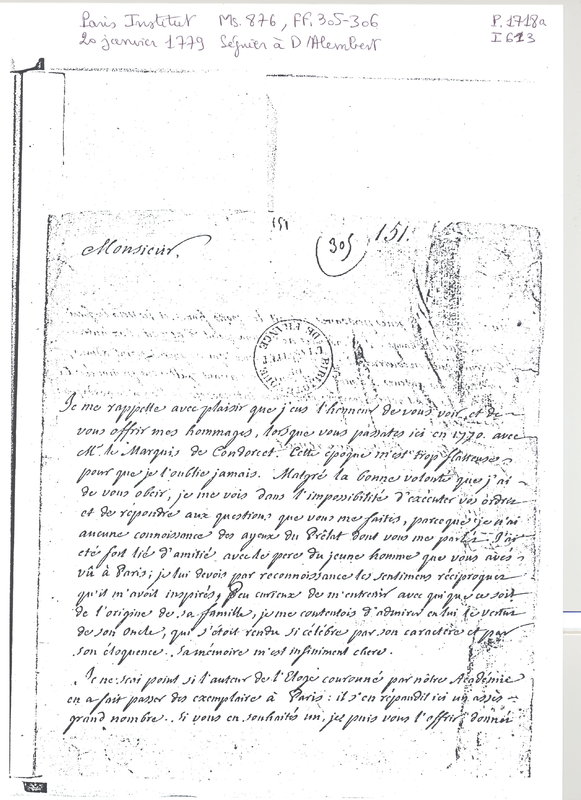 Paris Institut Ms. 876, FF. 305-306 P. 1718a
20 janvier 1779 Séguier à D'Alembert I 613
151
305 151.
Monsieur.
Je me rappelle avec plaisir que j'eus l'honneur de vous voir, et de
vous offrir mes hommages, lorsque vous passates ici en 1770. avec
Mr. le Marquis de Condorcet. Cette époque m'est trop flatteuse
pour que je l'oublie jamais. Malgré la bonne volonté que j'ai
de vous obeir, je me vois dans l'impossibilité d'exécuter vos ordres
et de repondre aux questions que vous me faites, parceque je n'ai
aucune connoissance des ayeux du Prélat dont vous me parlés. J'ai
eté fort lié d'amitié avec le pere du jeune homme que vous avés
vû à Paris; je lui devois par reconnoissance les sentimens réciproques
qu'il m'avoit inspirés; Peu curieux de m'entretenir avec qui que ce soit
de l'origine de sa famille, je me contentois d'admirer en lui le vertus
de son oncle, qui s'étoit rendu si célèbre par son caractère et par
son éloquence. Sa mémoire m'est infiniment chere.
Je ne scai point si l'auteur de l'Eloge couronné par nôtre Académie
en a fait passer des exemplaire à Paris: il s'en répandit ici un assès
grand nombre. Si vous en souhaités un, je puis vous l'offrir; donnés